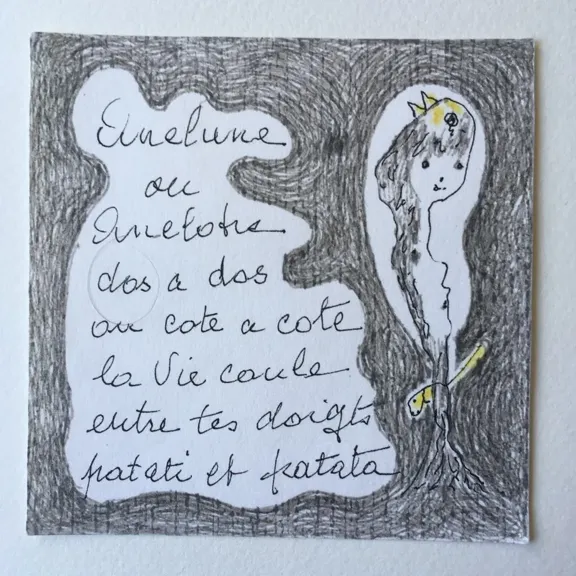 ou
dos a dos
ou cote a cote
la Vie coule
entre tes doigts
patati et patata